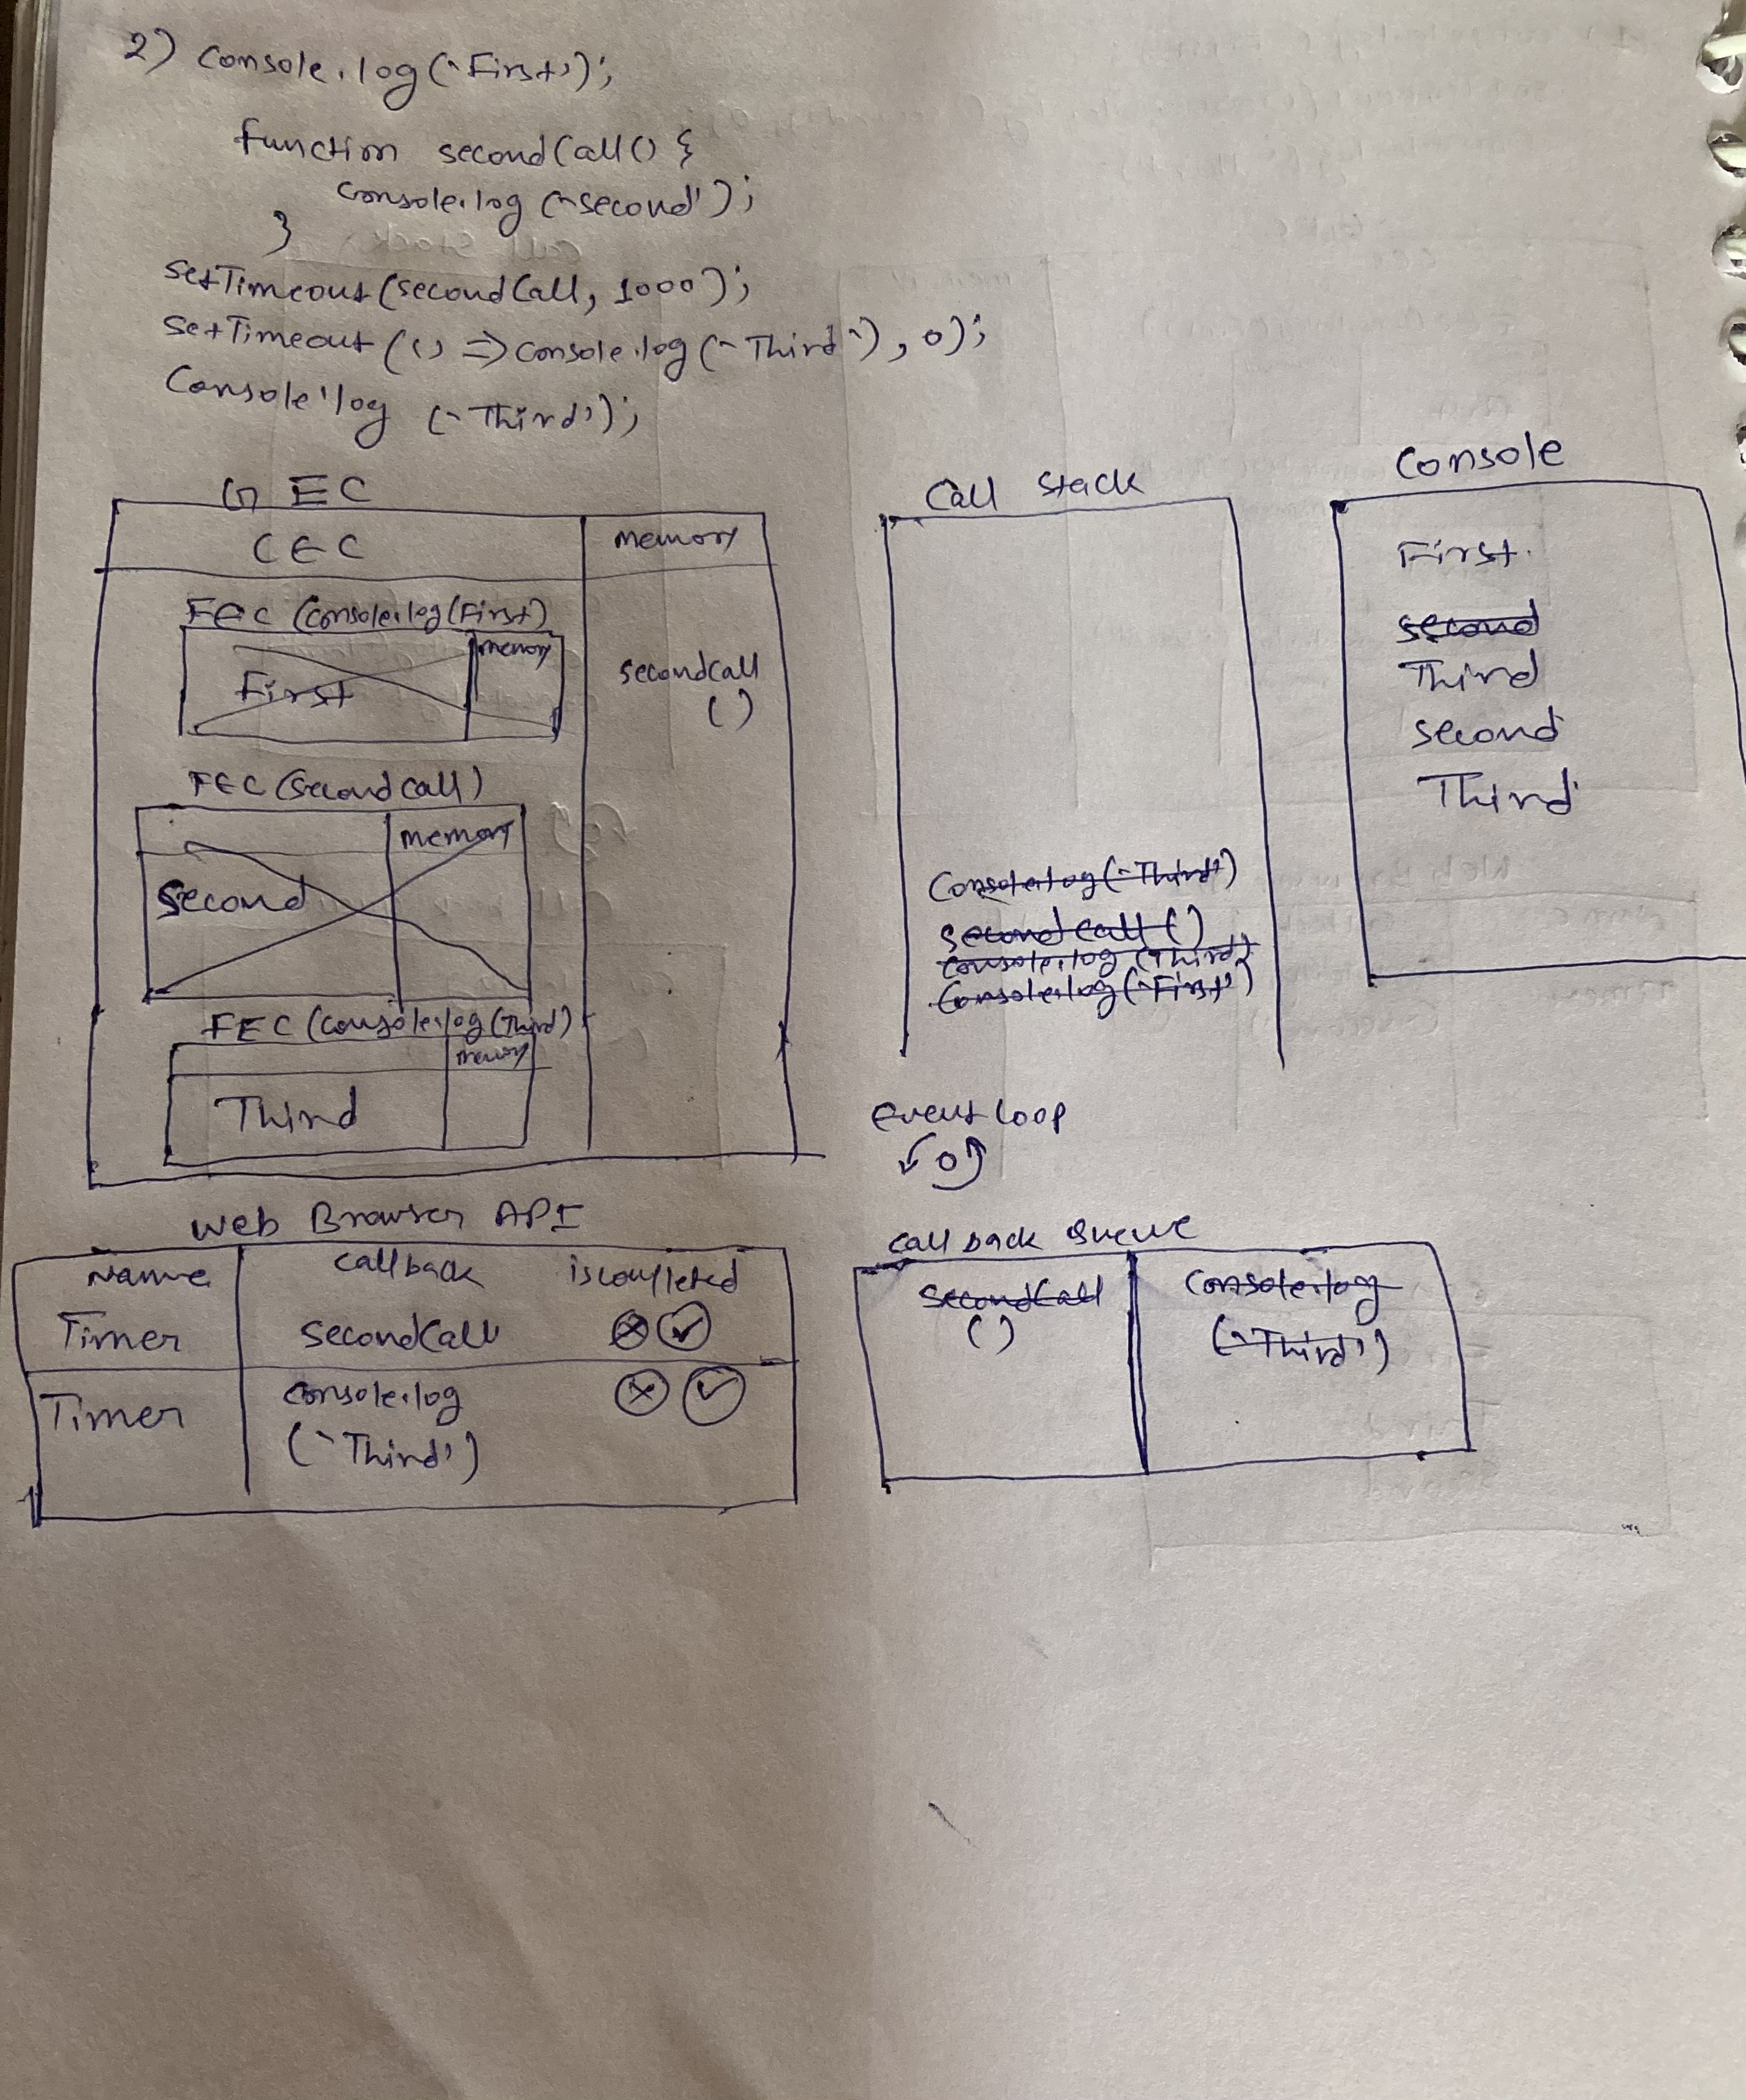 2) Console.log(`First');
function secondCall() {
console.log(`second');
}
setTimeout(secondCall, 1000);
setTimeout(() => console.log(`Third'), 0);
Console.log(`Third');
G EC
CEC
memory
FEC (console.log(First)
memory
First
secondcall
()
FEC (Second call)
memory
Second
FEC (console.log(Third)
memory
Third
Call Stack
Console.log(`Third')
secondcall()
console.log(Third)
Console.log(`First')
Console
First.
second
Third
second
Third
Event loop
Web Browser API
Name callback iscompleted
Timer SecondCall
Timer console.log
(`Third')
Call back Queue
SecondCall
()
Console.log
(`Third')